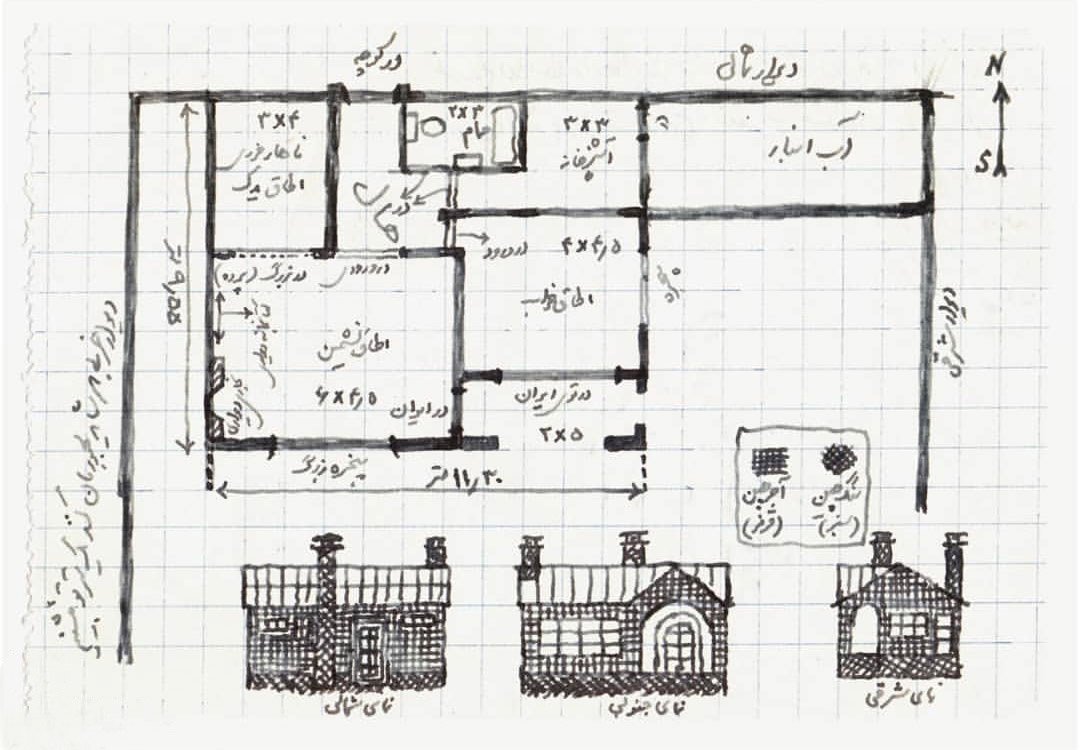 در کوچه
دیوار شمالی
N
S
۳×۴
ناهار خوری
اطاق یدک
۲×۳
حمام
۳×۳
آشپزخانه
آب انبار
در ورود
۴×۴٫۵
اطاق خواب
پنجره
دیوار شرقی
در بزرگ (پرده)
در ورودی
اطاق نشیمن
۶×۴٫۵
در ایوان
ایوان
۲×۵
پنجره بزرگ
۱۱٫۳۰ متر
آجر چین
(قرمز)
سنگ چین
(سبز)
نمای شمالی
نمای جنوبی
نمای شرقی